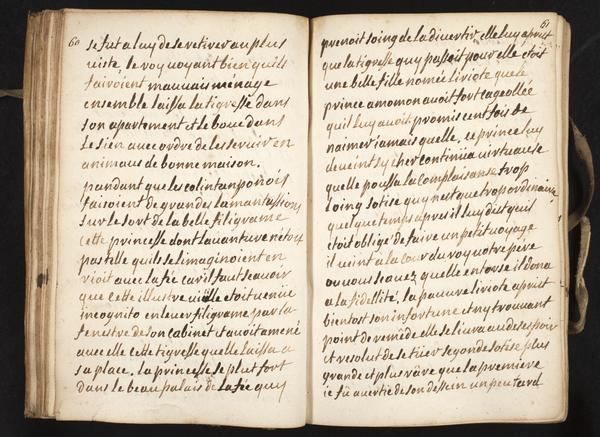 60
se fut a luy de se retirer au plus
viste, le roy voyant bien quils
fairoient mauuais ménage
ensemble laissa la tigresse dans
son apartement et le bouc dans
le sien auec ordre de les seruir en
animaus de bonne maison.
pandant que les colintanponois
faisoient de grandes lamantations
sur le sort de la belle filigrame
cette princesse dont lauanture nétoit
pas telle quils se limaginoient en
rioit auec la fée car il faut scauoir
que cette illustre vieille etoit venüe
incognito enleuer filigrame par la
fenestre de son cabinet et auoit amené
auec elle cette tigresse quelle laissa a
sa place. la princesse se plut fort
dans le beau palais de la fée quy
61
prenoit soing de la diuertir, elle luy aprit
que la tigresse quy passoit pour elle étoit
une belle fille nomée liriote que le
prince amomon auoit fort cageollée
quil luy auoit promis cent fois de
naimer iamais quelle, ce prince luy
deuient sy cher continüa uirtueuse
quelle poussa la complaisanse trop
loing sotise quy nest que trop ordinaire,
quelque temps apres il luy dist quil
étoit obligé de faire un petit uoyage
il uient a la cour du roy uotre pére
ou uous sauez quelle entorse il dona
a la fidellité, la pauure liriote aprist
bientost son infortune et ny trouuant
point de reméde elle se liura au desespoir
et resolut de se tüer segonde sotise plus
grande et plus râre que la premiere
ie fû auertie de son dessein un peu tard